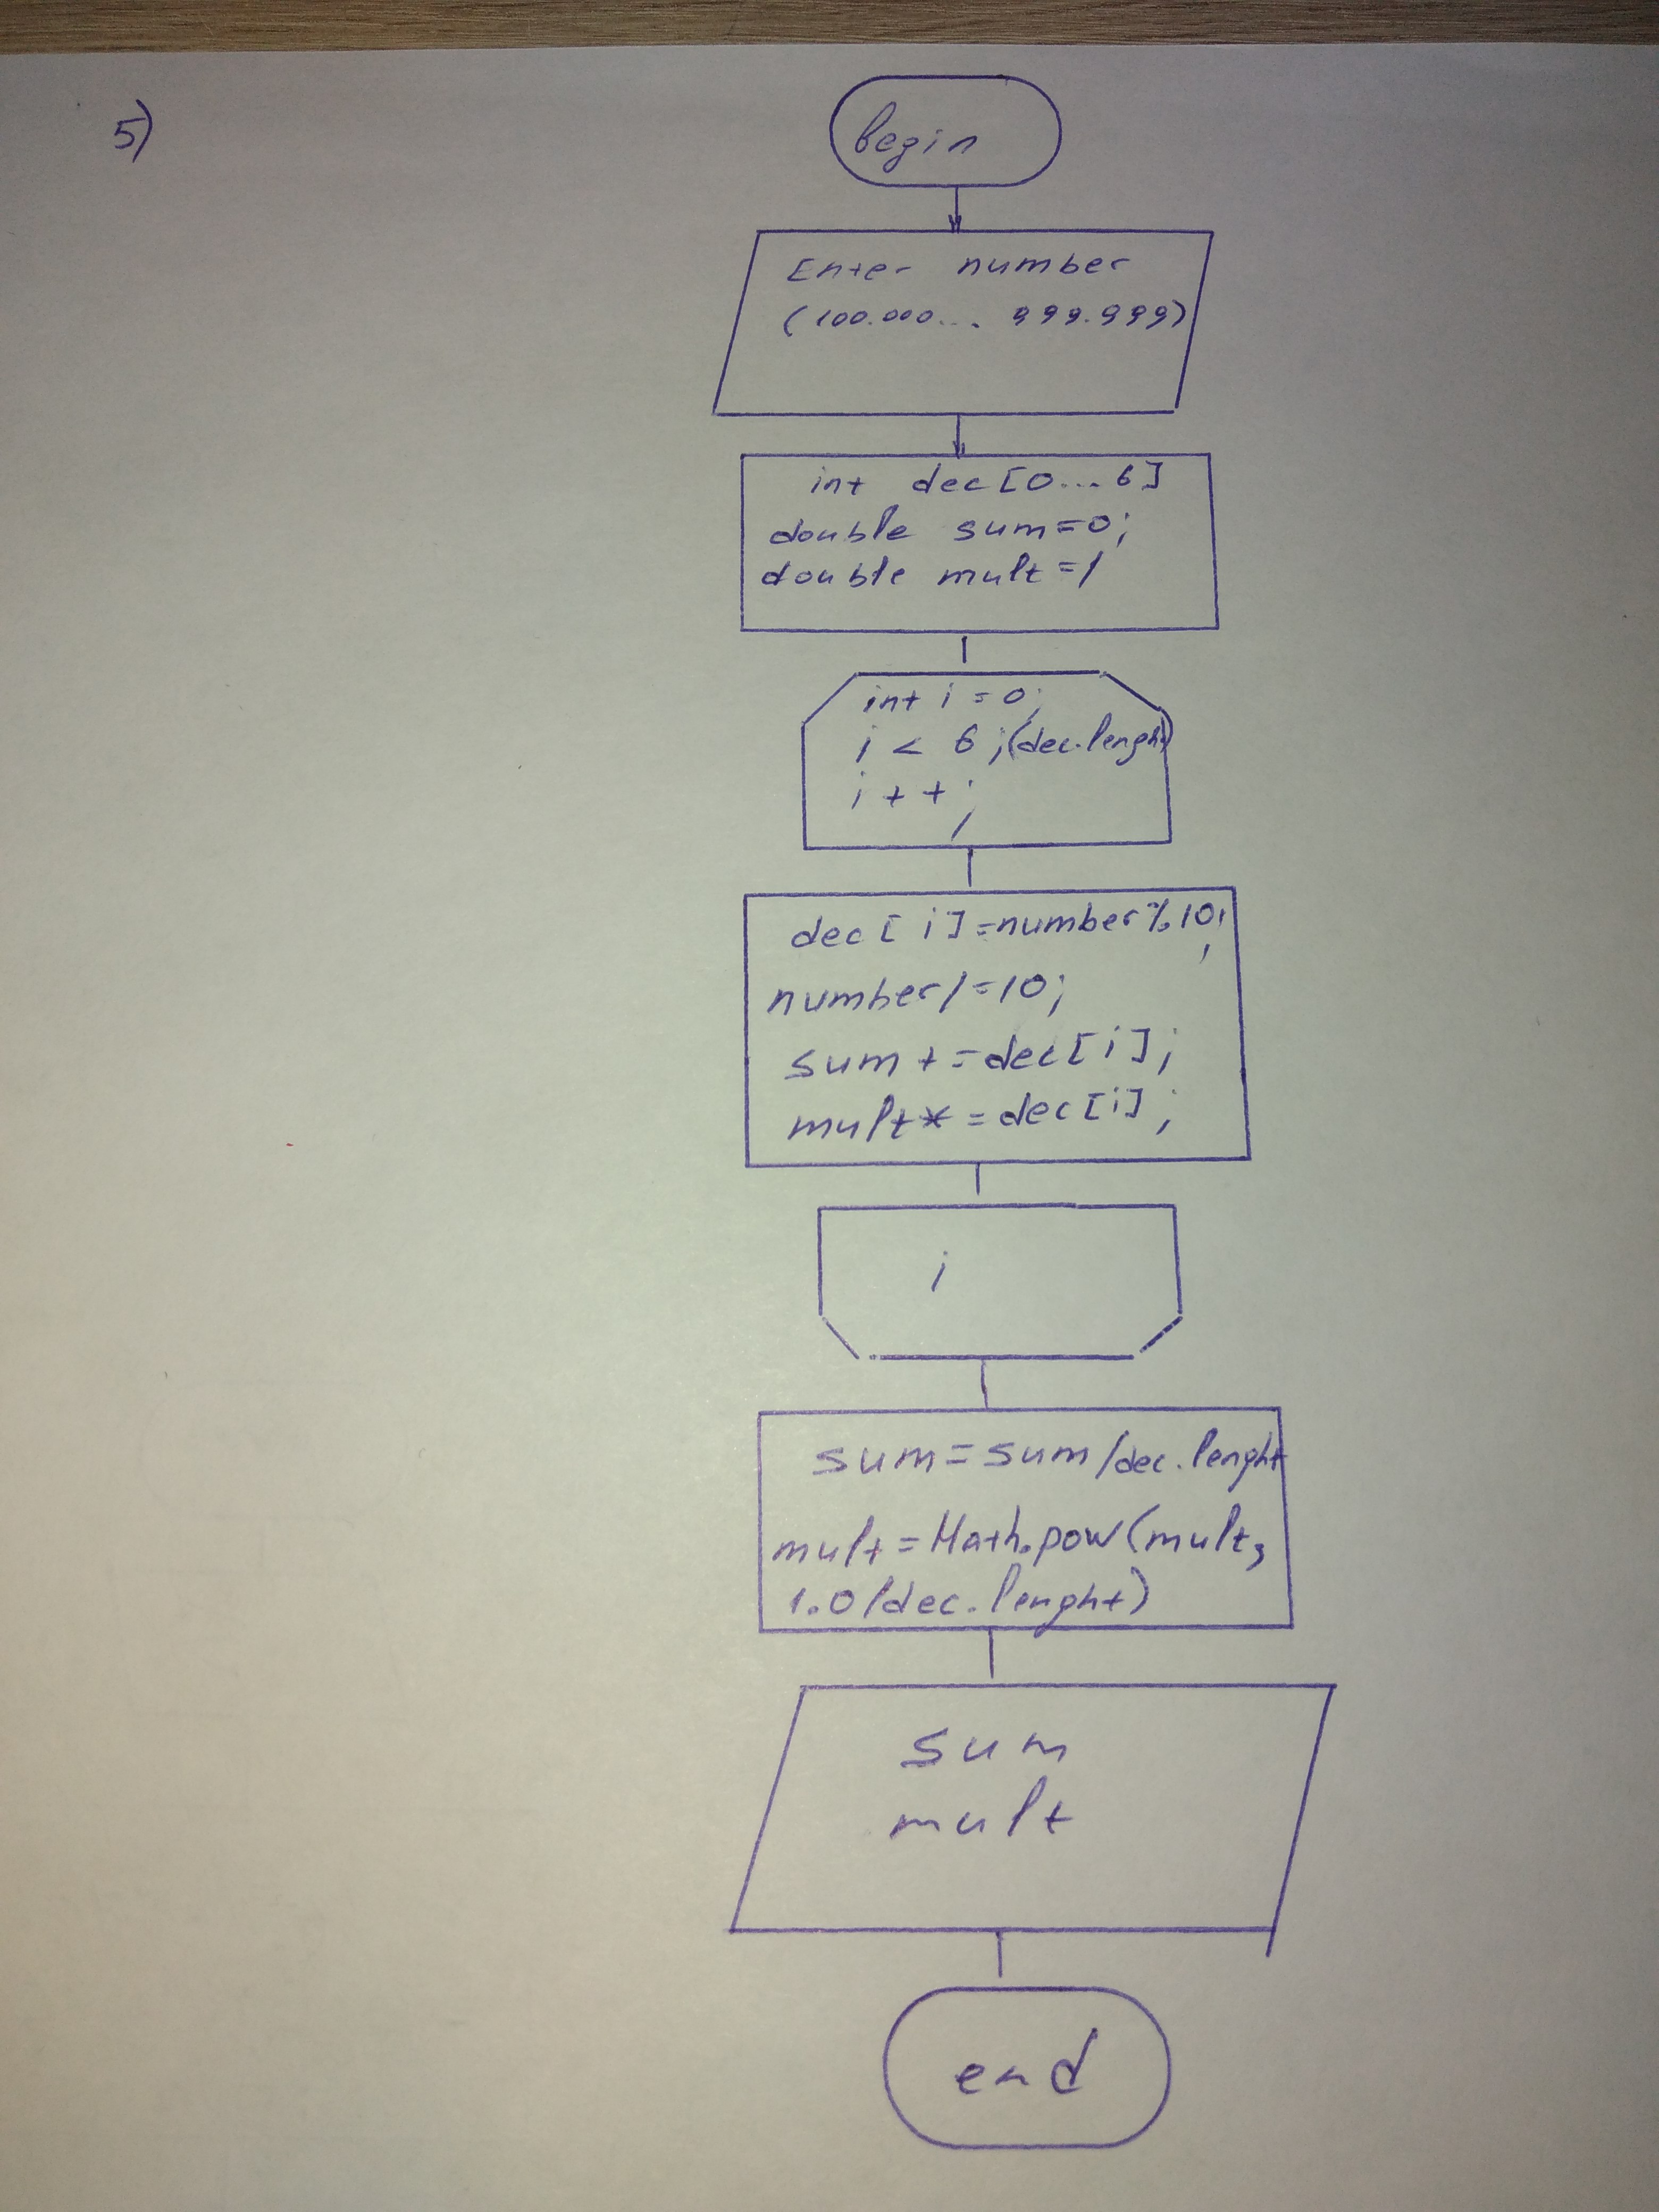 5)
begin
Enter number
(100.000... 999.999)
int dec[0...6]
double sum=0;
double mult=1
int i=0;
i < 6;(dec.lenght)
i++;
dec[i]=number%10;
number/=10;
sum+=dec[i];
mult*=dec[i];
i
sum=sum/dec.lenght
mult=Math.pow(mult,
1.0/dec.lenght)
sum
mult
end